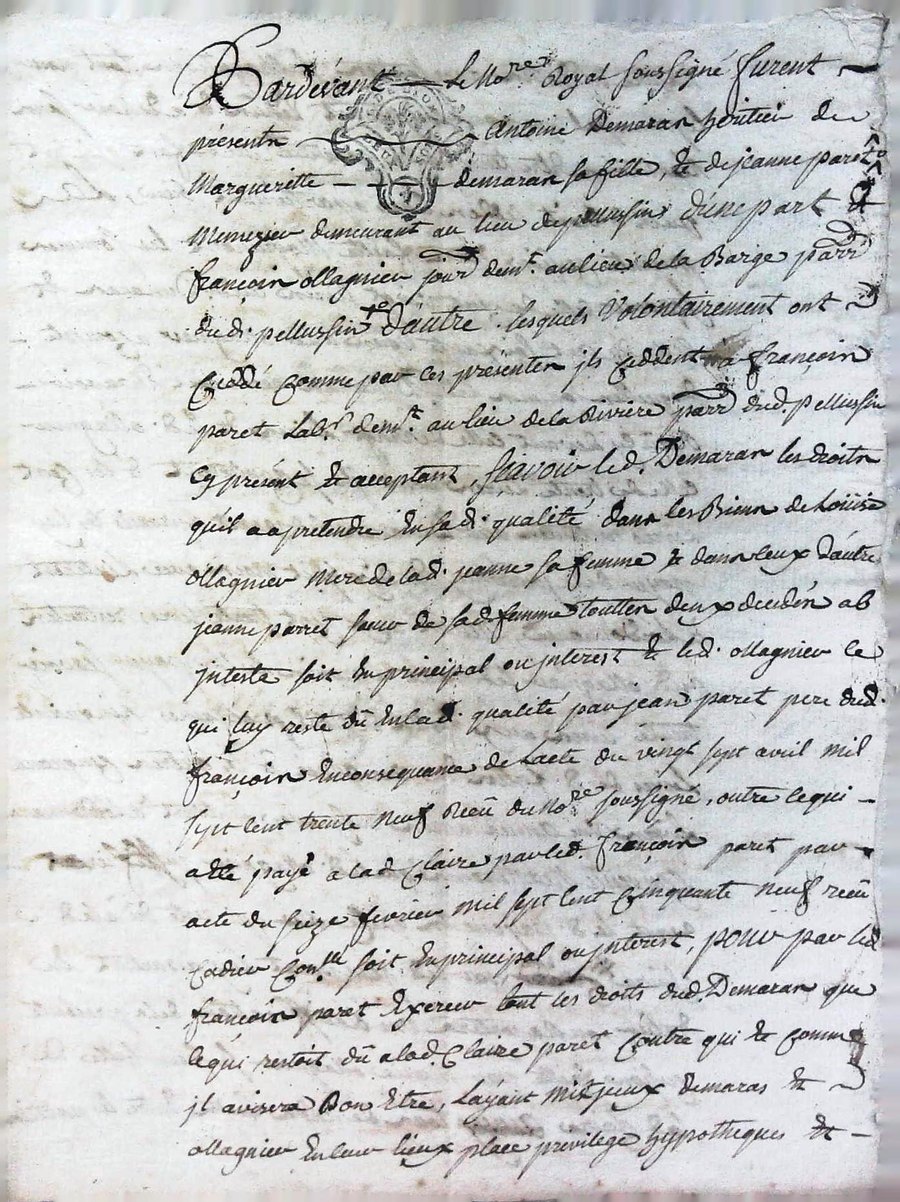 Pardevant le No.re Royal soussigné furent
présents Antoine Demaras héritier de
Margueritte demaras sa fille, & de jeanne paret
Menagier demeurant au lieu de pellussin d'une part &
françois ollagnier jour.r dem.t au lieu de la Barge parr.
dud. pellussin d'autre. lesquels Volontairement ont
Cueddé Comme par ces présentes jls Cèddent à françois
paret Lab.r dem.t au lieu de la Rivière parr. dud. pellussin
Cy présent & acceptant, Sçavoir led. Demaras les droits
qu'il a a pretendre En sad. qualité dans les Biens de Loüise
ollagnier Mere de lad. jeanne sa femme & dans ceux d'autre
jeanne parret soeur de sad. femme touttes deux decédés ab
jntesta soit En principal ou jnterest & led. ollagnier ce
qui luy reste dû En lad. qualité par jean paret pere dud.
françois En consequance de L'acte du vingt sept avril mil
sept cent trente neuf Reçû du No.re soussigné, outre ce qui
a été payé a lad. Claire par led. françois paret par
acte du seize février mil sept cent Cinquante neuf reçû
Cadier soit En principal ou jnterest, pour par led.
françois paret Exercer tant les droits dud. Demaras que
ce qui restoit dû a lad. Claire paret Contre qui & comme
jl avisera Bon Etre, L'ayant Mis jceux demaras &
ollagnier En leur lieux place privilege hypotheques &